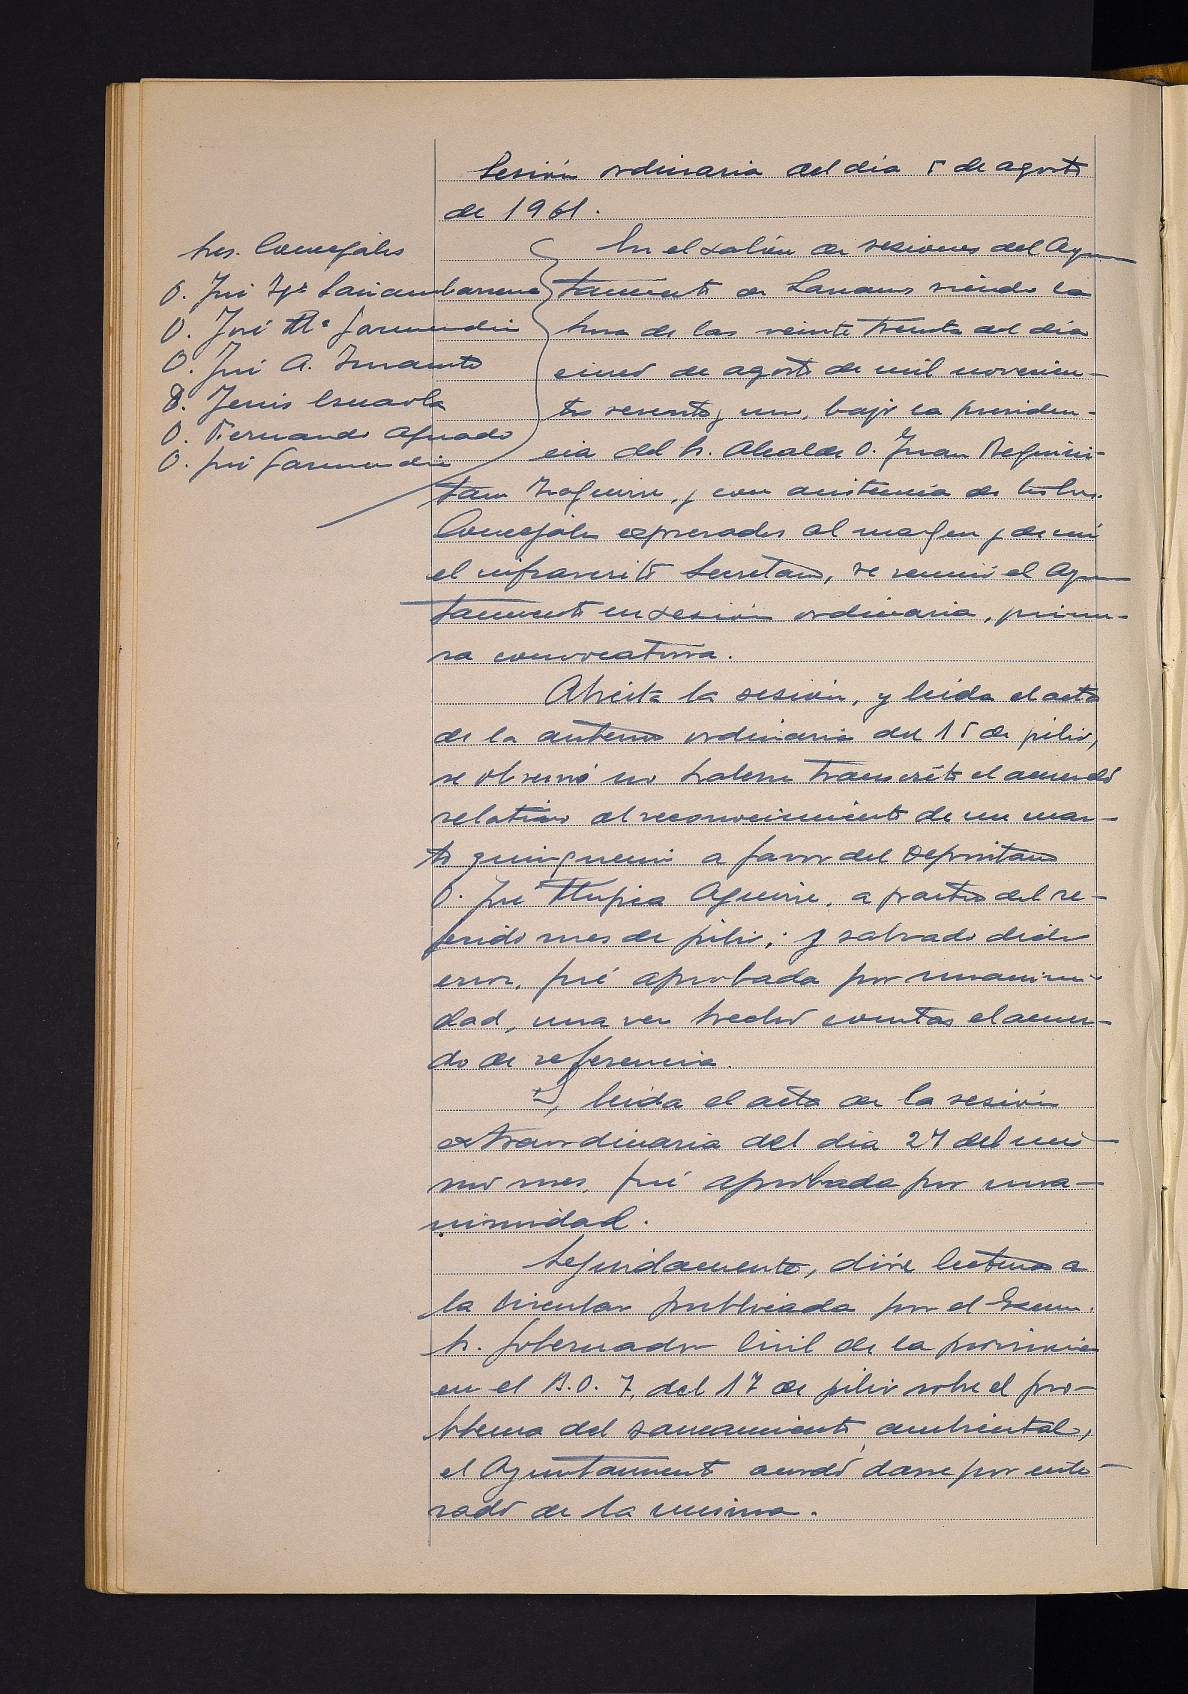 Sesión ordinaria del dia 5 de agosto
de 1961.
Sres. Concejales
D. José Mª Sarasmbarrena
D. José Mª Garmendia
D. José A. Insausti
D. Jesús Esnaola
D. Fernando Aguado
D. José Garmendia
En el salón de sesiones del Ayun
tamiento de siendo la
hora de las veinte treinta del dia
cinco de agosto de mil novecien-
tos sesenta y uno, bajo la presiden-
cia del Sr. Alcalde D. Juan
y con asistencia de los Sres.
Concejales expresados al margen y de mi
el infrascrito Secretario, se reunió el Ayun
tamiento en sesión ordinaria, prime-
ra convocatoria.
Abierta la sesión, y leida el acta
de la anterior ordinaria del 15 de julio,
se observó no haberse transcrito el acuerdo
relativo al reconocimiento de un cuar-
to quinquenio a favor del Depositario
D. José Aguirre, a partir del re-
ferido mes de julio; y salvado dicho
error, fué aprobada por unanimi-
dad, una vez hecho constar el acuer-
do de referencia.
leida el acta de la sesión
extraordinaria del dia 27 del mis-
mo mes, fué aprobada por una-
nimidad.
Seguidamente, dióse lectura a
la Circular publicada por el Excmo.
Sr. Gobernador Civil de la provincia
en el B.O. del 17 de julio sobre el pro-
blema del saneamiento ambiental,
el Ayuntamiento acordó darse por ente-
rado de la misma.